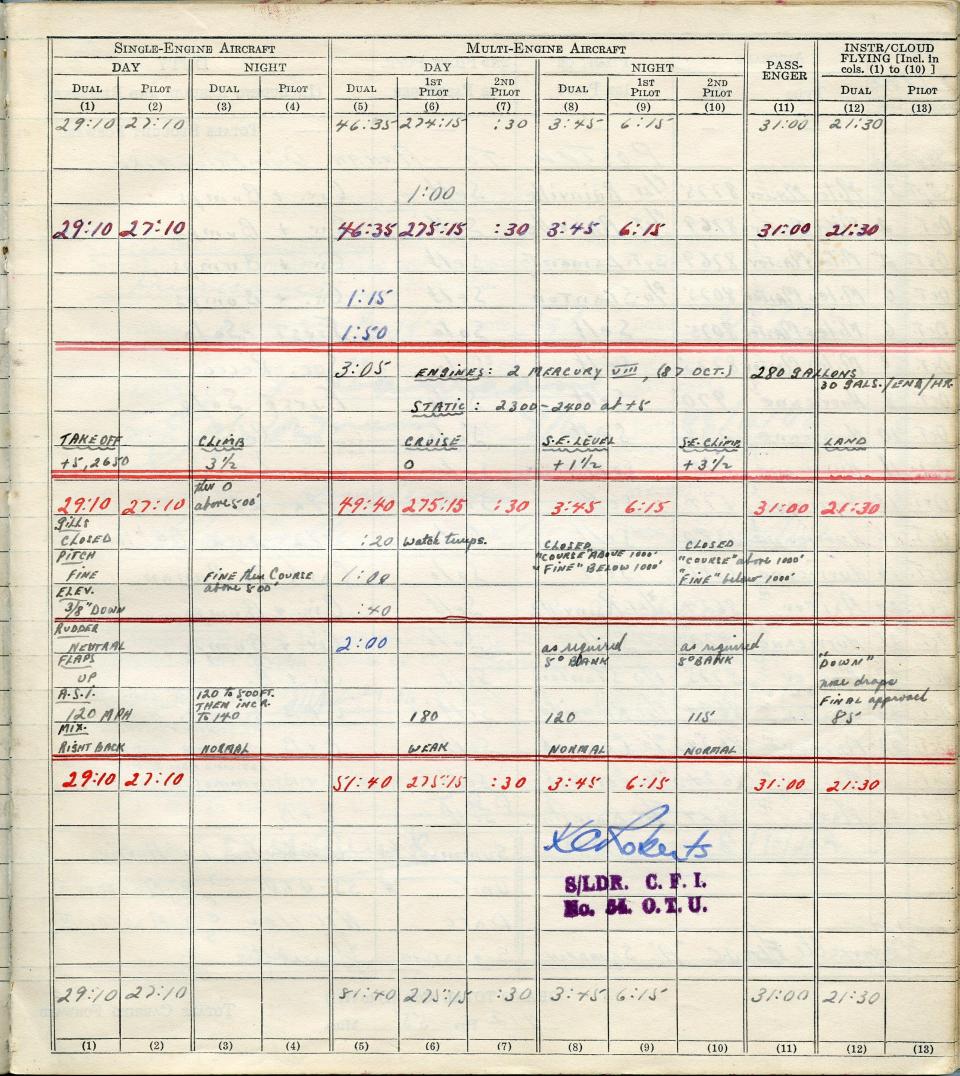 SINGLE-ENGINE AIRCRAFT MULTI-ENGINE AIRCRAFT PASS-ENGER INSTR/CLOUD FLYING [Incl. in cols. (1) to (10) ]
DAY NIGHT DAY NIGHT
DUAL PILOT DUAL PILOT DUAL 1ST PILOT 2ND PILOT DUAL 1ST PILOT 2ND PILOT DUAL PILOT
(1) (2) (3) (4) (5) (6) (7) (8) (9) (10) (11) (12) (13)
29:10 27:10 46:35 274:15 :30 3:45 6:15 31:00 21:30
1:00
29:10 27:10 46:35 275:15 :30 3:45 6:15 31:00 21:30
1:15
1:50
3:05 ENGINES: 2 MERCURY VIII, (87 OCT.) 280 GALLONS
30 GALS./ENG/HR.
STATIC: 2300-2400 at +5
TAKE OFF CLIMB CRUISE S.E. LEVEL S.E. CLIMB LAND
+5, 2650 3 1/2 0 +1 1/2 +3 1/2
then 0
above 500'
29:10 27:10 49:40 275:15 :30 3:45 6:15 31:00 21:30
GILLS
CLOSED :20 Watch temps. CLOSED CLOSED
PITCH "COURSE" ABOVE 1000' "COURSE" above 1000'
FINE FINE then COURSE 1:00 "FINE" BELOW 1000' "FINE" below 1000'
above 500'
ELEV.
3/8" DOWN :40
RUDDER
NEUTRAL 2:00 as required as required
FLAPS 5° BANK 5° BANK "DOWN"
UP nose drops
A.S.I. 120 to 500FT. FINAL approach
THEN INCR.
120 MPH TO 140 180 120 115 85
MIX.
RIGHT BACK NORMAL WEAK NORMAL NORMAL
29:10 27:10 51:40 275:15 :30 3:45 6:15 31:00 21:30
KC Roberts
S/LDR. C. F. I.
No. 54. O. T. U.
29:10 27:10 81:40 275:15 :30 3:45 6:15 31:00 21:30
(1) (2) (3) (4) (5) (6) (7) (8) (9) (10) (11) (12) (13)